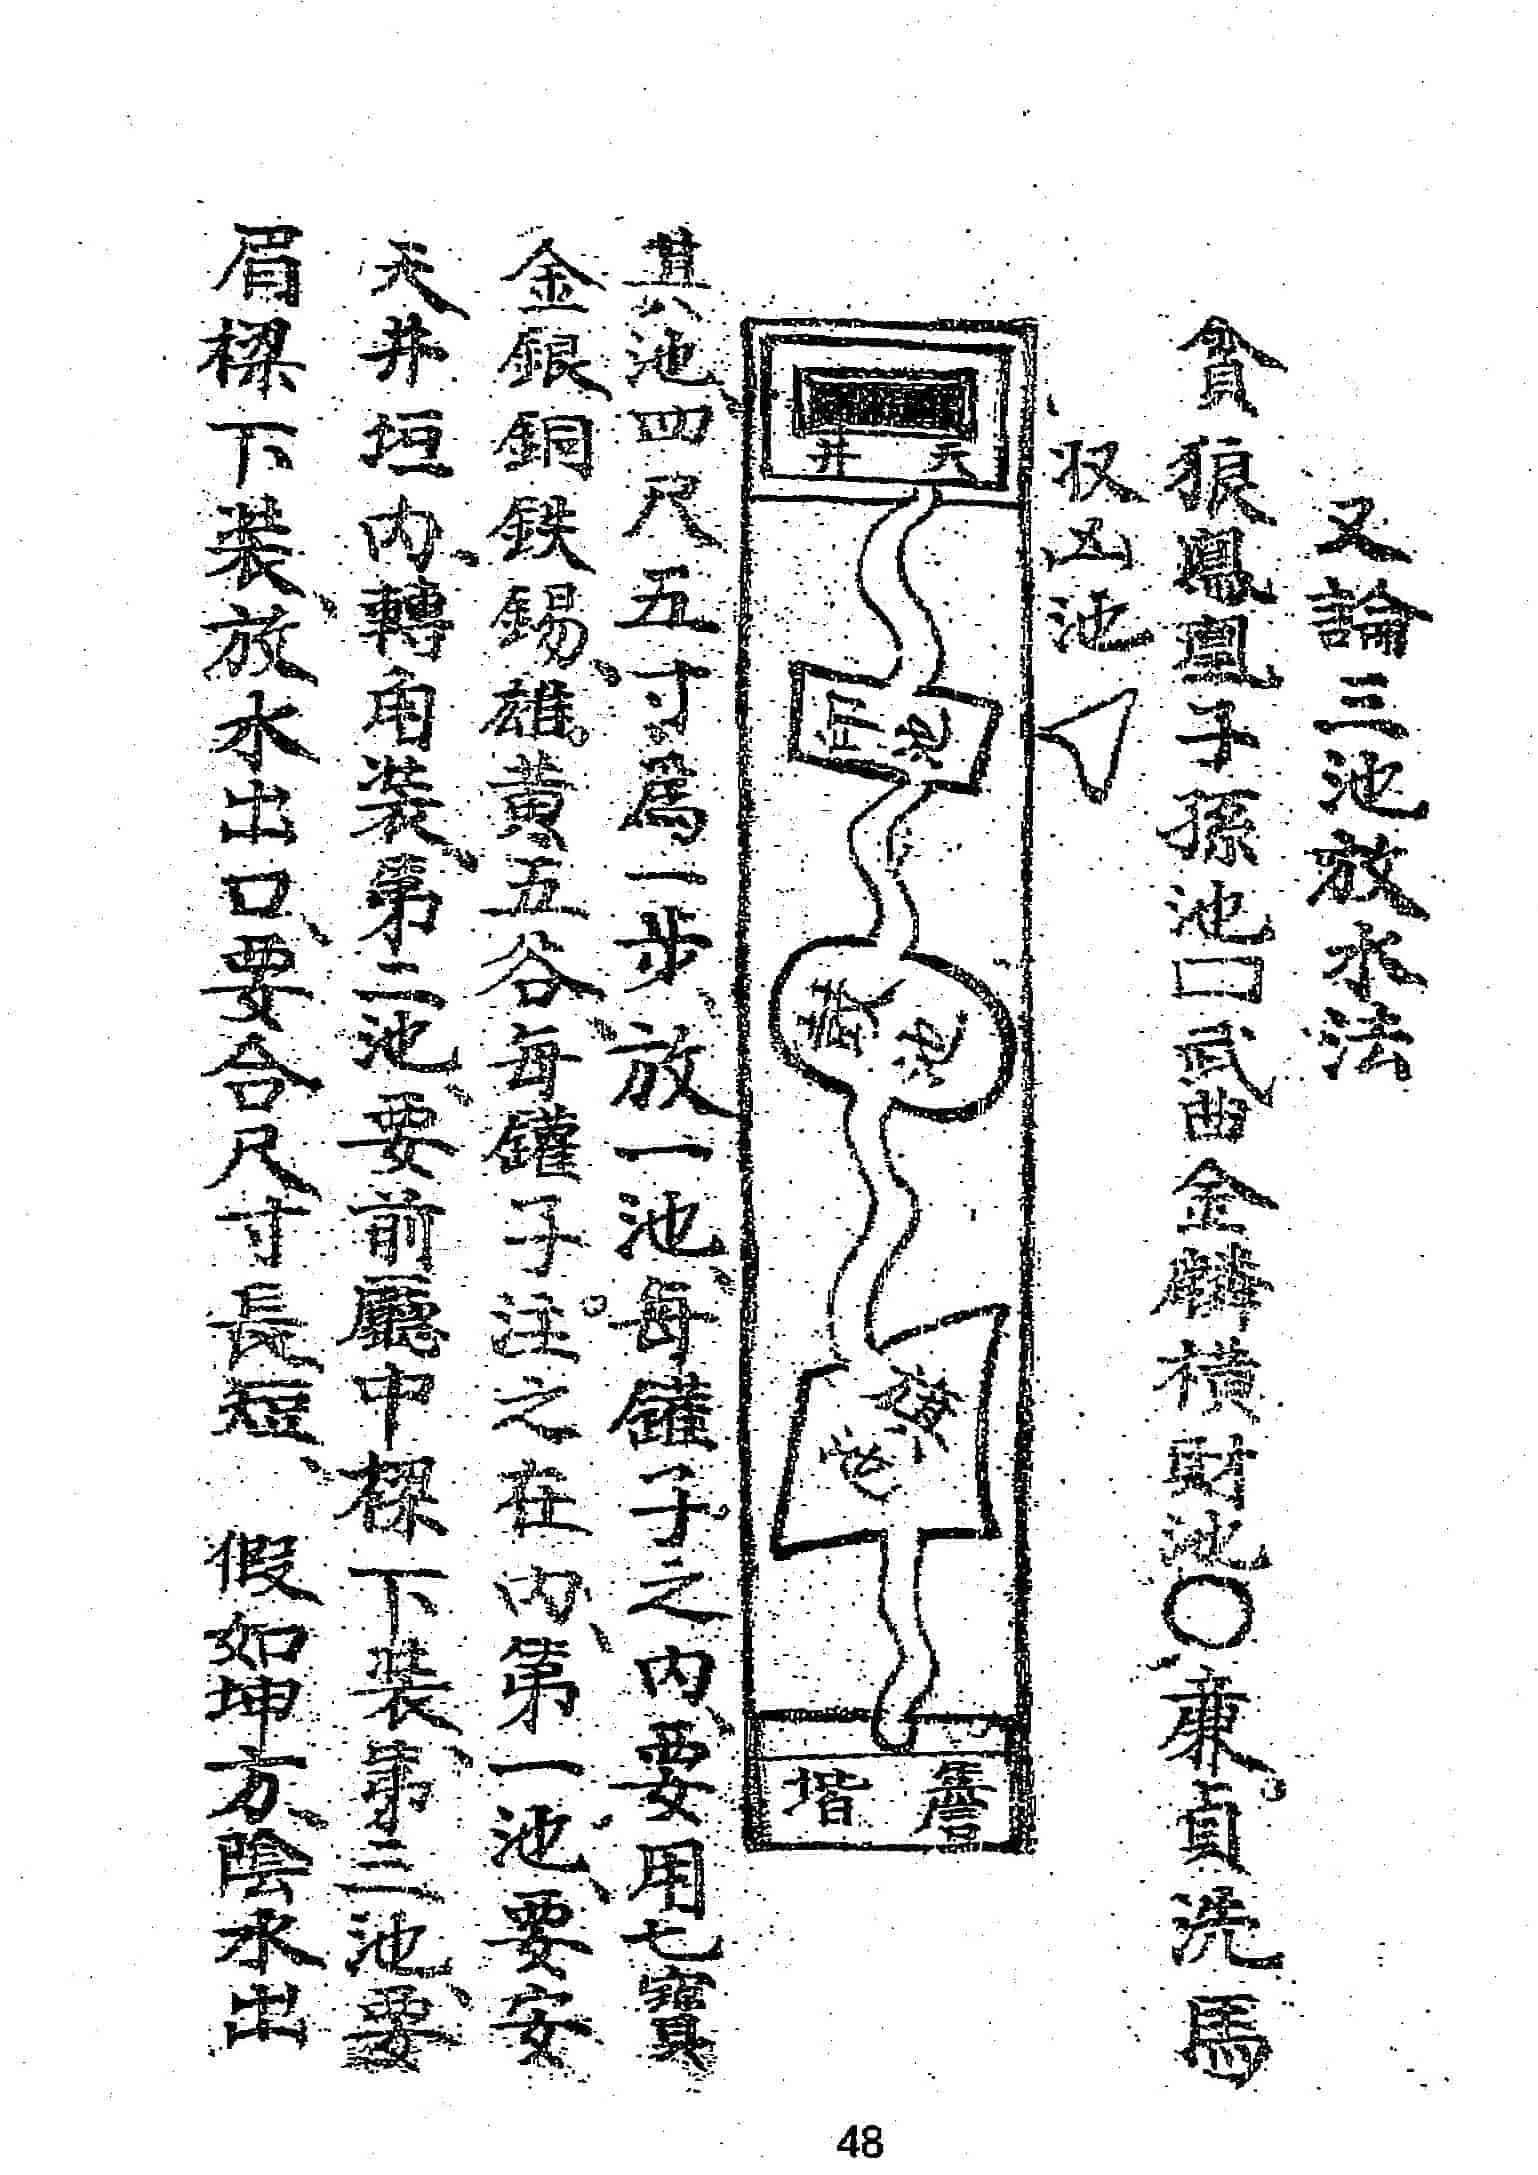 又論三池放水法
貪狼鳳凰子孫池口武曲金麟橫財池〇廉貞洗馬
収凶池
天井
池
池
旗池
簷堦
其池四尺五寸爲一步、放一池、每鑵子之內、要用七寶
金銀銅鉄錫、雄黃五谷、每鑵子注之在內、第一池、要安
天井垣內、轉角裝、第二池、要前廳中樑下裝、第三池、要
眉樑下裝、放水出口、要合尺寸長短、假如坤方、陰水出
48